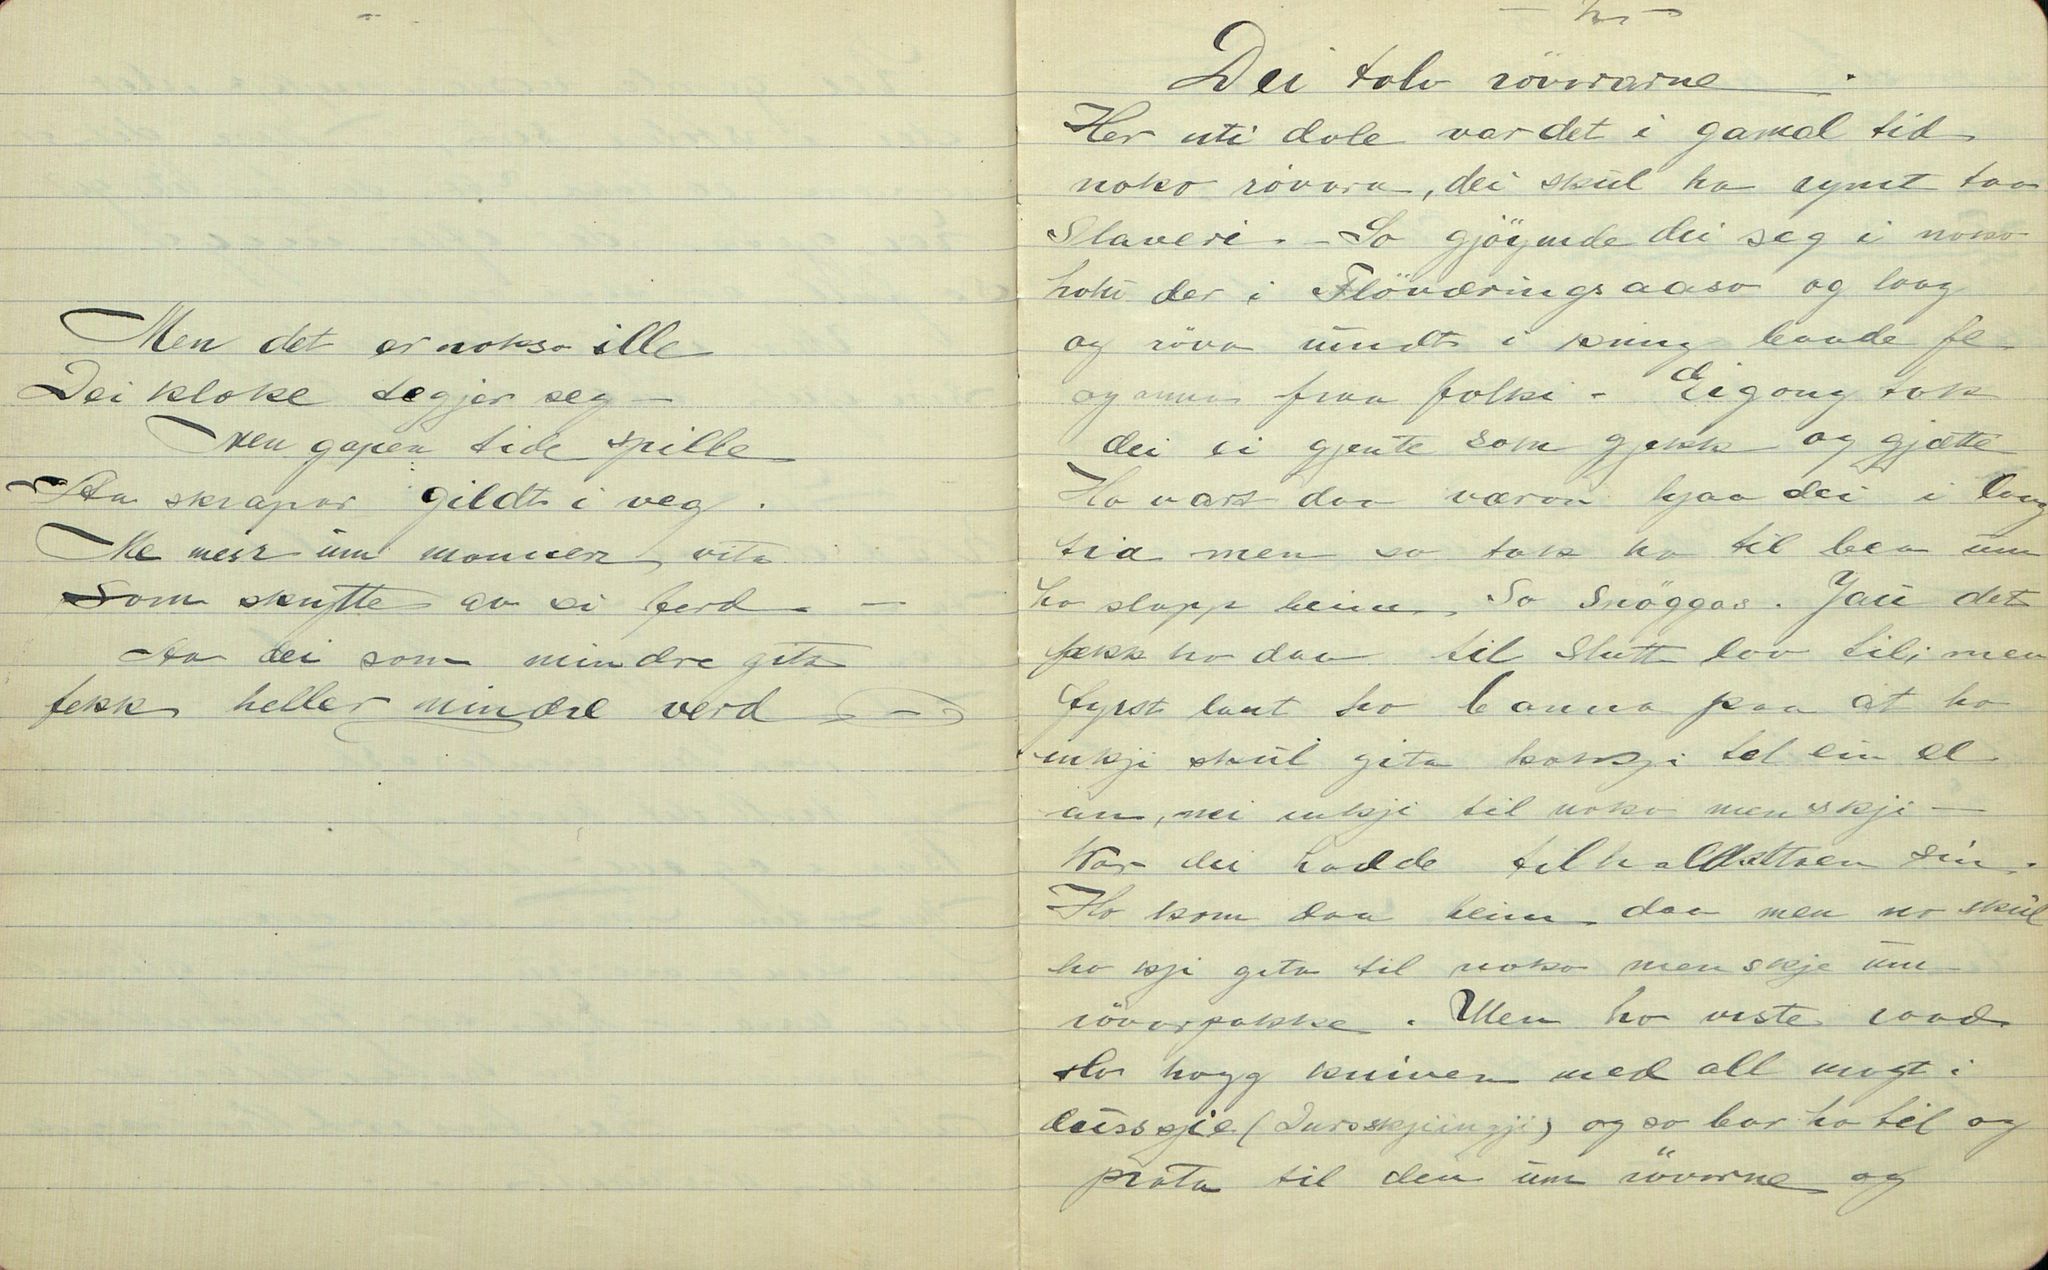 Men det er nokso ille
Dei kloke tegjer seg –
Men gapen tide spille
Aa skrapar gildt i veg.
Me meir um mannen vita
Som skutte av si ferd. –
Aa dei som mindre gita
fekk heller mindre verd –
Dei tolv rövararne.
Her uti dale var det i gamal tid
noko rövara, dei skül ha rymt taa
Slaveri. – So gjöymde dei seg i noko
holü der i Flöværingsaaso og laag
og röva rundt i kring baade fe
og anna fraa folki – Ei gong tok
dei ei gjente som gjekk og gjætte
Ho vart daa væran hjaa dei i lang
tia men so tok ho til bea um
ho slapp heim so snöggas. Jau det
fekk ho daa til Slutt lov til; men
fyrst laut ho banna paa at ho
inkji skül gita kokji tel ein el
an, nei inkji til noko menskji –
kor dei hadde tilhaldstaen sin.
Ho kom daa heim daa men no skül
ho kji gita til noko menskje um
rövarpakke. Men ho viste raad
Ho hogg kniven med all magt i
düsskjie (Dursskjiingji) og so bar ho til og
prata til den um rövarne og